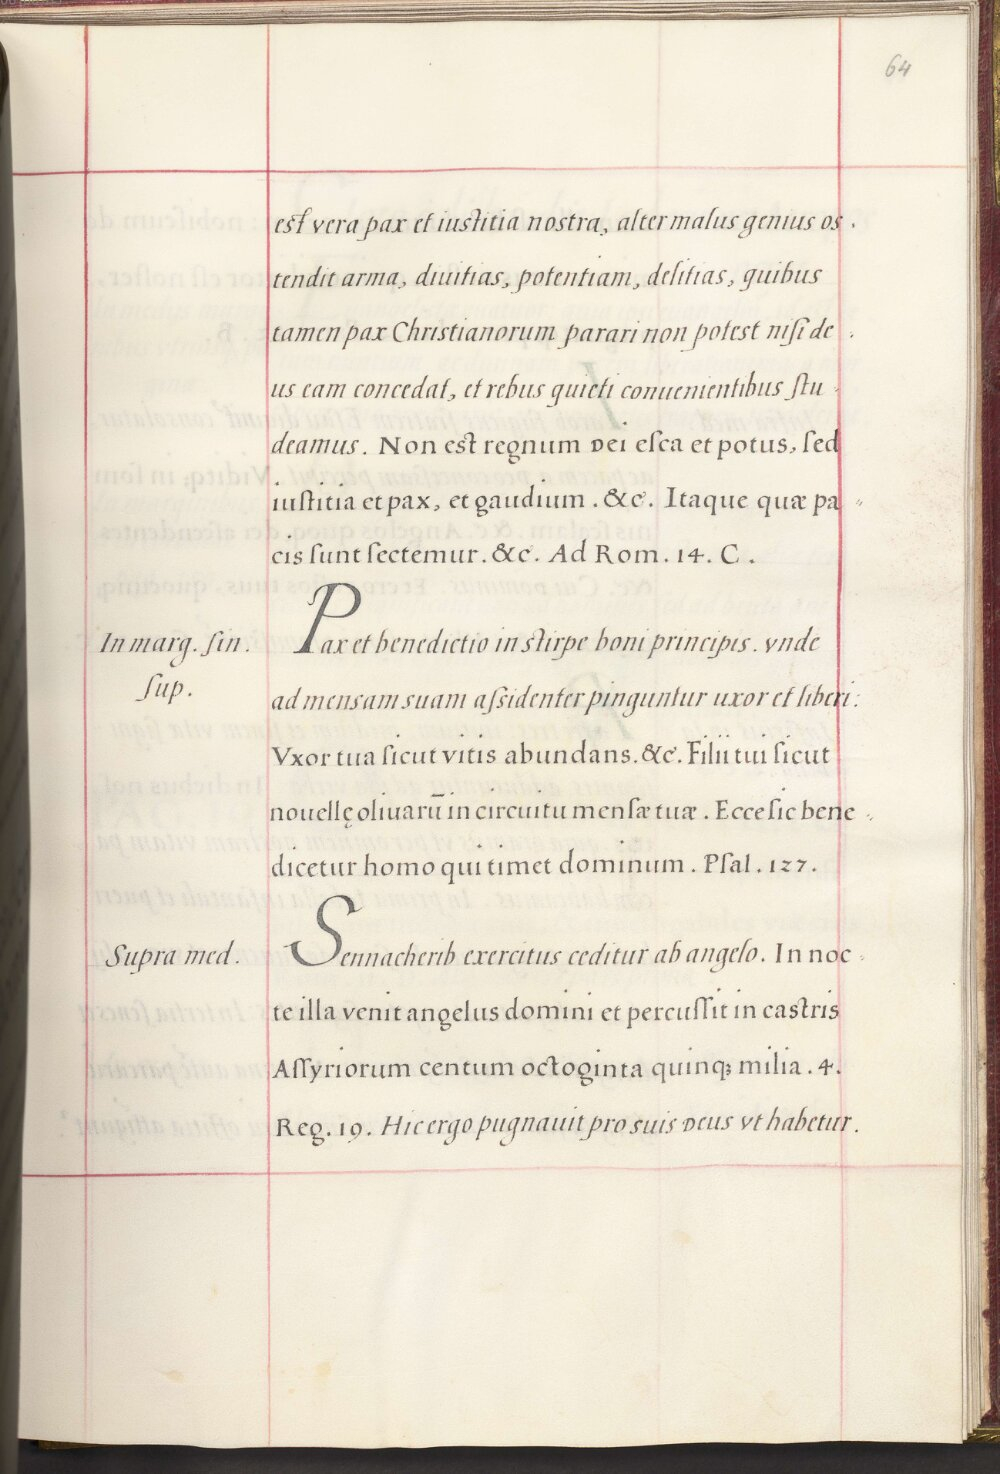 64
est vera pax et iustitia nostra, alter malus genius os
tendit arma, diuitias, potentiam, delitias, quibus
tamen pax Christianorum parari non potest nisi de
us eam concedat, et rebus quieti conuenientibus stu
deamus. Non est regnum Dei esca et potus, sed
iustitia et pax, et gaudium. &c. Itaque quæ pa
cis sunt sectemur. &c. Ad Rom. 14. C.
In marg. sin.
sup.
Pax et benedictio in stirpe boni principis. vnde
ad mensam suam assidenter pinguntur uxor et liberi:
Vxor tua sicut vitis abundans. &c. Filii tui sicut
nouellę oliuarū in circuitu mensæ tuæ. Ecce sic bene
dicetur homo qui timet dominum. Psal. 127.
Supra med.
Sennacherib exercitus ceditur ab angelo. In noc
te illa venit angelus domini et percussit in castris
Assyriorum centum octoginta quinq; milia. 4.
Reg. 19. Hic ergo pugnauit pro suis Deus vt habetur.